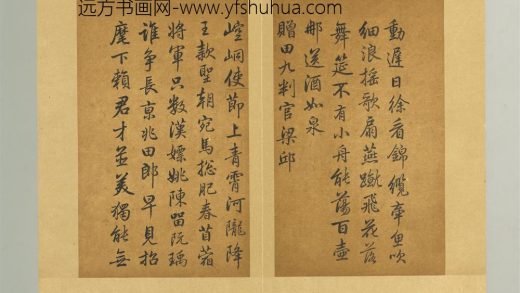 远方书画网-www.yfshuhua.com
動遲日徐看錦纜牽魚吹
細浪搖歌扇燕蹴飛花落
舞筵不有小舟能蕩百壺
那送酒如泉
贈田九判官梁邱
崆峒使節上青霄河隴降
王款聖朝宛馬總肥春苜蓿
將軍只數漢嫖姚陳留阮瑀
誰爭長京兆田郎早見招
麾下賴君才並美獨能無